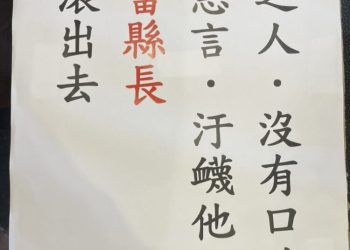 之人・沒有口
惡言・汙衊他
番縣長
滾出去